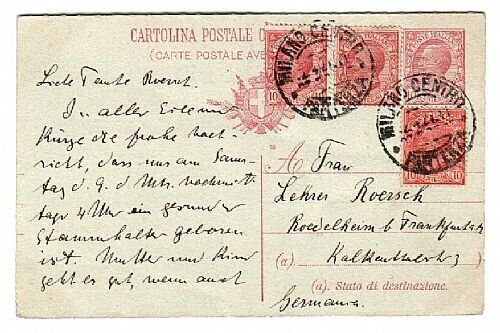 CARTOLINA POSTALE
(CARTE POSTALE
MILANO CENTRO
PARTENZA
MILANO CENTRO
PARTENZA
10
10
10
Liebe Tante
In aller Eile und
Kürze die frohe Nach-
richt, dass uns am Sams-
tag d. 9. d. Mts. nachmit
tags 4 Uhr ein gesunder
Stammhalter geboren
ist. Mutter und Kind
geht es gut, wenn auch
A Frau
Lehrer Roersch
Roedelheim b Frankfurt
(a)
(a). Stato di destinazione.
Germania.